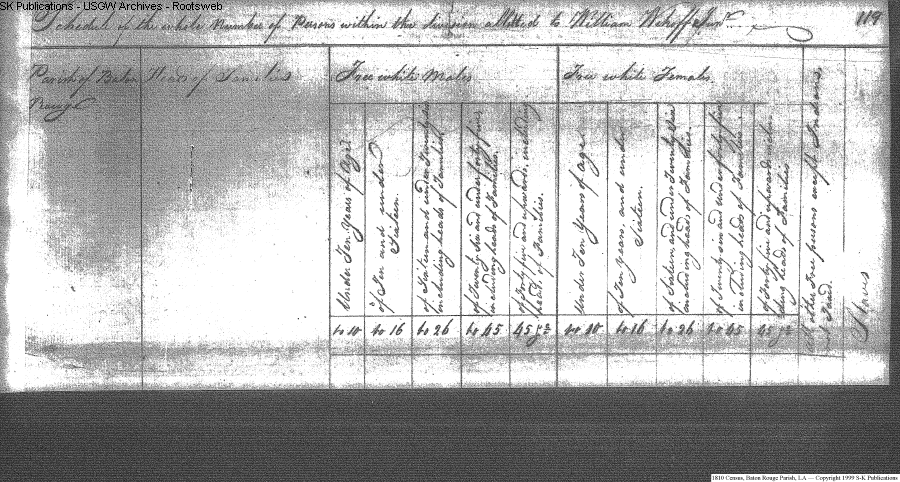 SK Publications - USGW Archives - Rootsweb
Schedule of the whole Number of Persons within the division allotted to William
119
Parish of Baton
Rouge
Heads of Families
Free white Males
Free white Females
Under Ten Years of Age
of Ten and under
Sixteen.
of Sixteen and under Twenty six
including heads of Families
of Twenty six and under forty five
including heads of Families.
of Forty five and upwards including
heads of Families.
Under Ten Years of Age
of Ten years, and under
Sixteen.
of Sixteen and under Twenty six
including heads of Families.
of Twenty six and under forty five
including heads of Families.
of Forty five and upwards including
heads of Families
All other Free persons except Indians
not Taxed.
Slaves
to 10
to 16
to 26
to 45
45 &c
to 10
to 16
to 26
to 45
45 &c
1810 Census, Baton Rouge Parish, LA — Copyright 1999 S-K Publications